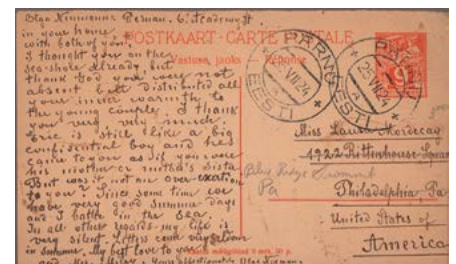 Olga Neumanns Pernau. 6. Academy st
in your home
with both of you.
I thought you on the
sea-shore already, but
thank God you were not
absent but distributed all
your inner warmth to
the young couple. I thank
you very very much.
Eric is still like a big
confidential boy and he
came to you as if you were
his mother or mother's sister
But was it not an over exertion
to you? Since some time we
have very good summer days
and I bathe in the sea.
In all other regards my life is
very silent. Letters come very seldom
in summer. My best love to you
Yours affectionately Olga
POSTKAART - CARTE POSTALE
Vastuse jaoks
Réponse
PÄRNU
VII 24
A
EESTI
PÄRNU
25 VII 24
A
EESTI
Miss Laura Mordecay
1922 Rittenhouse Square
Blue Ridge Summit
Pa
Philadelphia, Pa
United States of
America